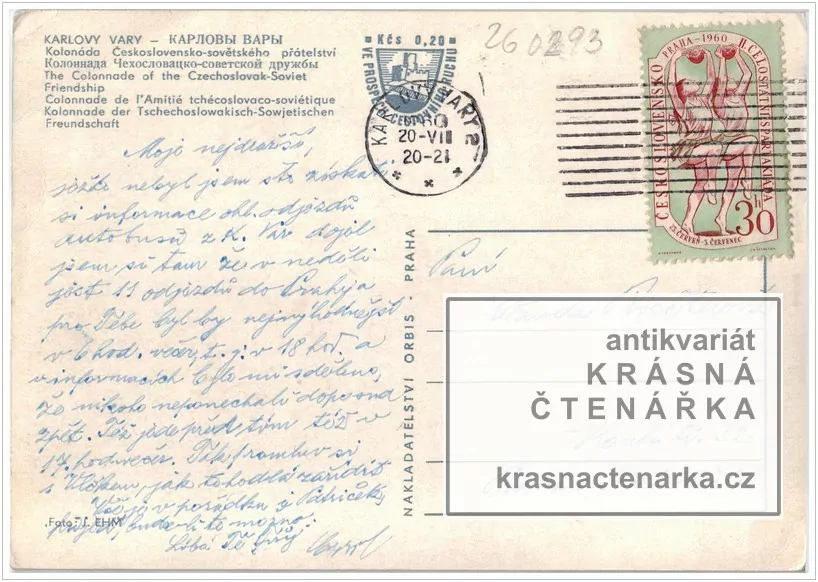 KARLOVY VARY – КАРЛОВЫ ВАРЫ
Kolonáda Československo-sovětského přátelství
Колоннада Чехословацко-советской дружбы
The Colonnade of the Czechoslovak-Soviet
Friendship
Colonnade de l'Amitié tchécoslovaco-soviétique
Kolonnade der Tschechoslowakisch-Sowjetischen
Freundschaft
Kčs 0,20
VE PROSPĚCH CESTOVNÍHO RUCHU
260293
KARLOVY VARY 2
20-VII
20-21
ČESKOSLOVENSKO
PRAHA-1960
II. CELOSTÁTNÍ SPARTAKIÁDA
30 h
23. ČERVEN-3. ČERVENEC
Mojo nejdražší,
nebyl jsem sto získati
si informace ohl. odjezdů
autobusů z K. Var dojel
jsem si tam že v neděli
jest 11 odjezdů do Prahy a
pro Tebe byl by nejvýhodnější
v 6 hod. večer, t. j. v 18 hod. a
v informacích bylo mi sděleno,
že nikoho neponechali doposud
zpět. Též jede před tím též v
17. hod večer. Pak promluv si
s jak tohodlá zaříditi
v pořádku i
bude-li to možno.
Líbá Tě Tvůj
Paní
NAKLADATELSTVÍ ORBIS · PRAHA
Foto: J. EHM
antikvariát
KRÁSNÁ
ČTENÁŘKA
krasnactenarka.cz